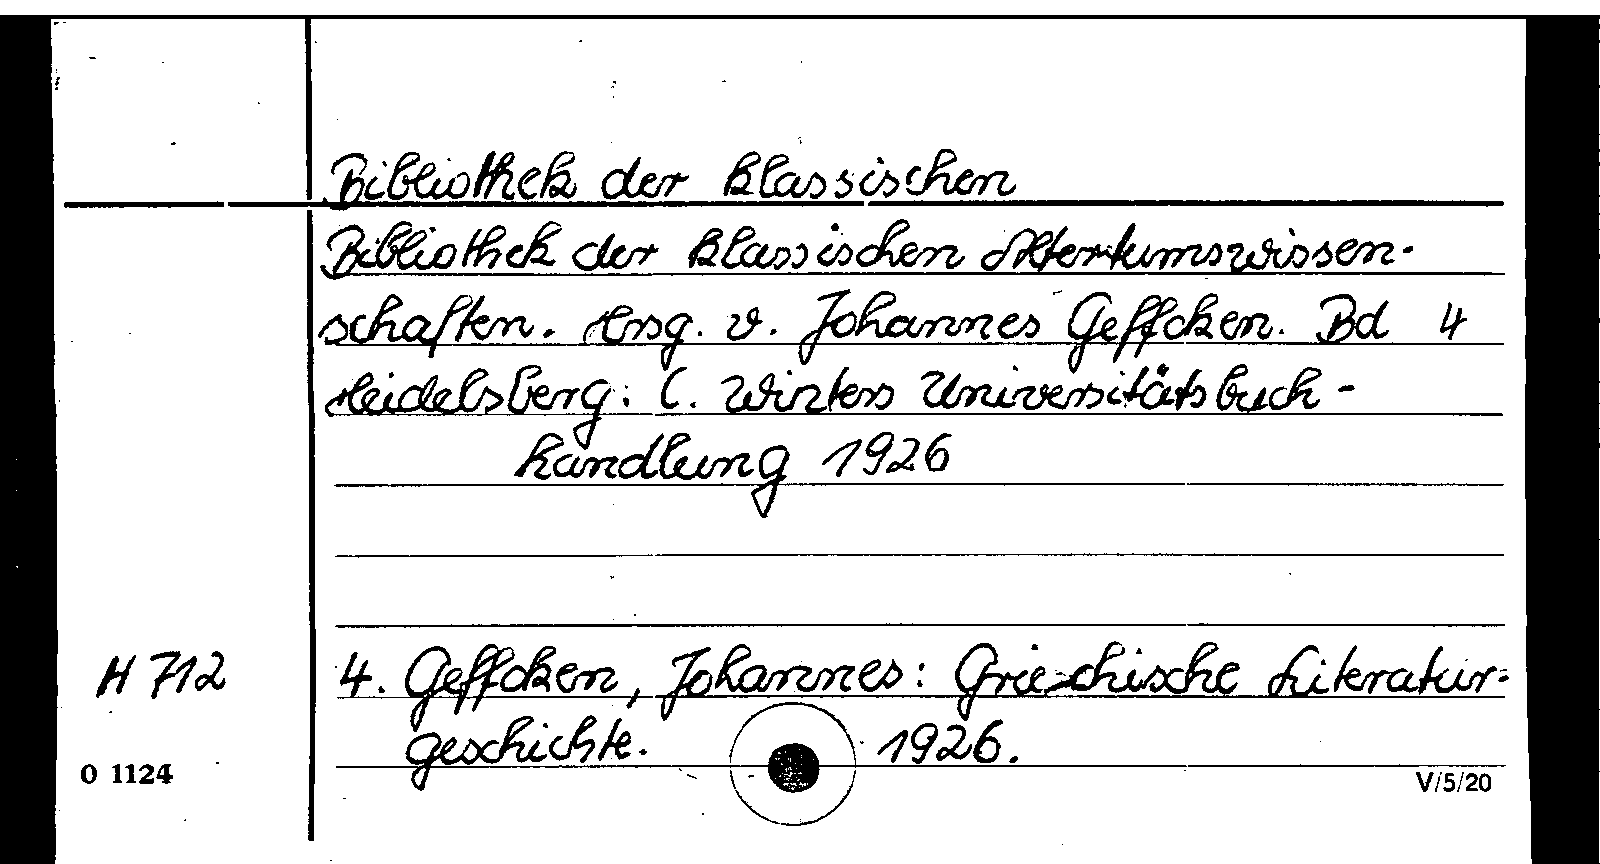 Bibliothek der klassischen
Bibliothek der klassischen Altertumswissen-
schaften. Hrsg. v. Johannes Geffcken. Bd 4
Heidelsberg: C. Winters Universitätsbuch-
handlung 1926
H 712 4. Geffcken, Johannes: Griechische Literatur-
geschichte. 1926.
O 1124 V/5/20